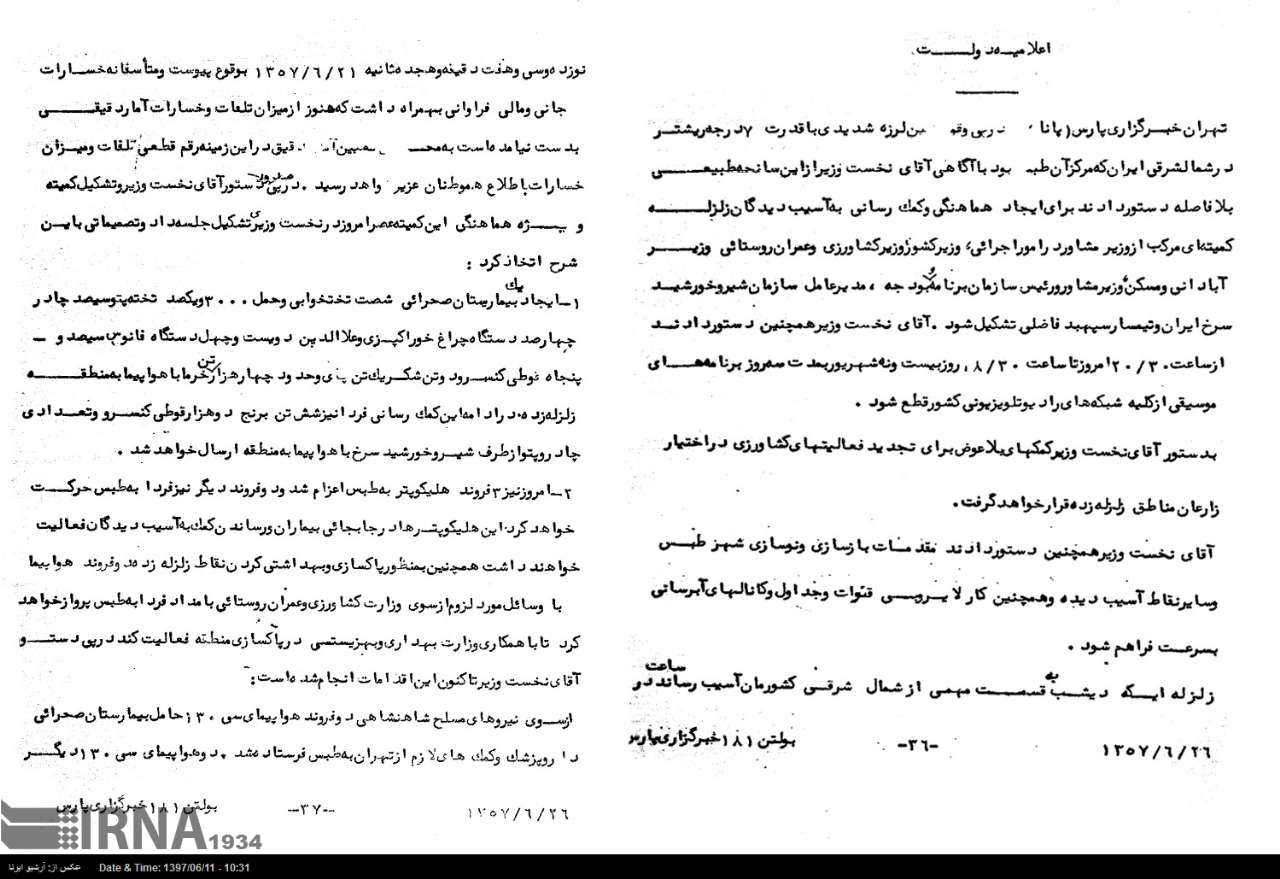 اعلامیه دولت.
تهران خبرگزاری پارس (پانا در پی وقو لرزه شدیدی با قدرت ۷ درجه ریشتر
در شمال شرقی ایران که مرکز آن طبـ بود با آگاهی آقای نخست وزیر از این سانحه طبیعی
بلافاصله دستور دادند برای ایجاد هماهنگی و کمک رسانی به آسیب دیدگان زلزله
کمیته‌ای مرکب از وزیر مشاور در امور اجرائی، وزیر کشور وزیر کشاورزی و عمران روستائی وزیر
آبادانی و مسکن و وزیر مشاور و رئیس سازمان برنامه و بودجه، مدیرعامل سازمان شیر و خورشید
سرخ ایران و تیمسار سپهبد فاضلی تشکیل شود. آقای نخست وزیر همچنین دستور دادند
از ساعت ۲۰/۳۰ امروز تا ساعت ۸/۳۰، روز بیست و نه شهریور بمدت سه روز برنامه‌های
موسیقی از کلیه شبکه‌های رادیو تلویزیونی کشور قطع شود.
بدستور آقای نخست وزیر کمکهای بلاعوض برای تجدید فعالیتهای کشاورزی در اختیار
زارعان مناطق زلزله زده قرار خواهد گرفت.
آقای نخست وزیر همچنین دستور دادند مقدمات بازسازی و نوسازی شهر طبس
و سایر نقاط آسیب دیده و همچنین کار لایروبی قنوات و جداول و کانالهای آبرسانی
بسرعت فراهم شود.
زلزله ایکه دیشب به قسمت مهمی از شمال شرقی کشورمان آسیب رساند در ساعت
۱۳۵۷/۶/۲۶ -۳۶- بولتن ۱۸۱ خبرگزاری پارس
نوزده و سی و هفت دقیقه و هجده ثانیه ۱۳۵۷/۶/۲۱ بوقوع پیوست و متأسفانه خسارات
جانی و مالی فراوانی بهمراه داشت که هنوز از میزان تلفات و خسارات آمار دقیقی
بدست نیامده است به دقیق در این زمینه رقم قطعی تلفات و میزان
خسارات باطلاع هموطنان عزیز واهد رسید. در پی دستور آقای نخست وزیر و تشکیل کمیته
ویژه هماهنگی این کمیته عصر امروز در نخست وزیری تشکیل جلسه داد و تصمیماتی باین
شرح اتخاذ کرد :
۱- ایجاد یک بیمارستان صحرائی شصت تختخوابی و حمل ۳۰۰۰ ویکصد تخته پتو سیصد چادر
چهارصد دستگاه چراغ خوراکپزی و علاالدین دویست و چهل دستگاه فانوس سیصد و -
پنجاه قوطی کنسرو دو تن شکر یک تن و حدود چهار هزار تن خرما با هواپیما به منطقه
زلزله زده در ادامه این کمک رسانی فردا نیز شش تن برنج دو هزار قوطی کنسرو و تعدادی
چادر و پتو از طرف شیر و خورشید سرخ با هواپیما به منطقه ارسال خواهد شد.
۲- امروز نیز ۳ فروند هلیکوپتر به طبس اعزام شد و دو فروند دیگر نیز فردا به طبس حرکت
خواهد کرد. این هلیکوپترها در جابجائی بیماران و رساندن کمک به آسیب دیدگان فعالیت
خواهند داشت همچنین بمنظور پاکسازی و بهداشتی کردن نقاط زلزله زده دو فروند هواپیما
با وسائل مورد لزوم از سوی وزارت کشاورزی و عمران روستائی بامداد فردا به طبس پرواز خواهد
کرد تا با همکاری وزارت بهداری و بهزیستی در پاکسازی منطقه فعالیت کند در پی دستور
آقای نخست وزیر تاکنون این اقدامات انجام شده است:
از سوی نیروهای مسلح شاهنشاهی دو فروند هواپیمای سی ۱۳۰ حامل بیمارستان صحرائی
دارو پزشک و کمک های لازم از تهران به طبس فرستاده شد. دو هواپیمای سی ۱۳۰ دیگر
۱۳۵۷/۶/۲۶ -۳۷- بولتن ۱۸۱ خبرگزاری پارس
IRNA 1934
عکس از: آرشیو ایرنا Date & Time: 1397/06/11 - 10:31